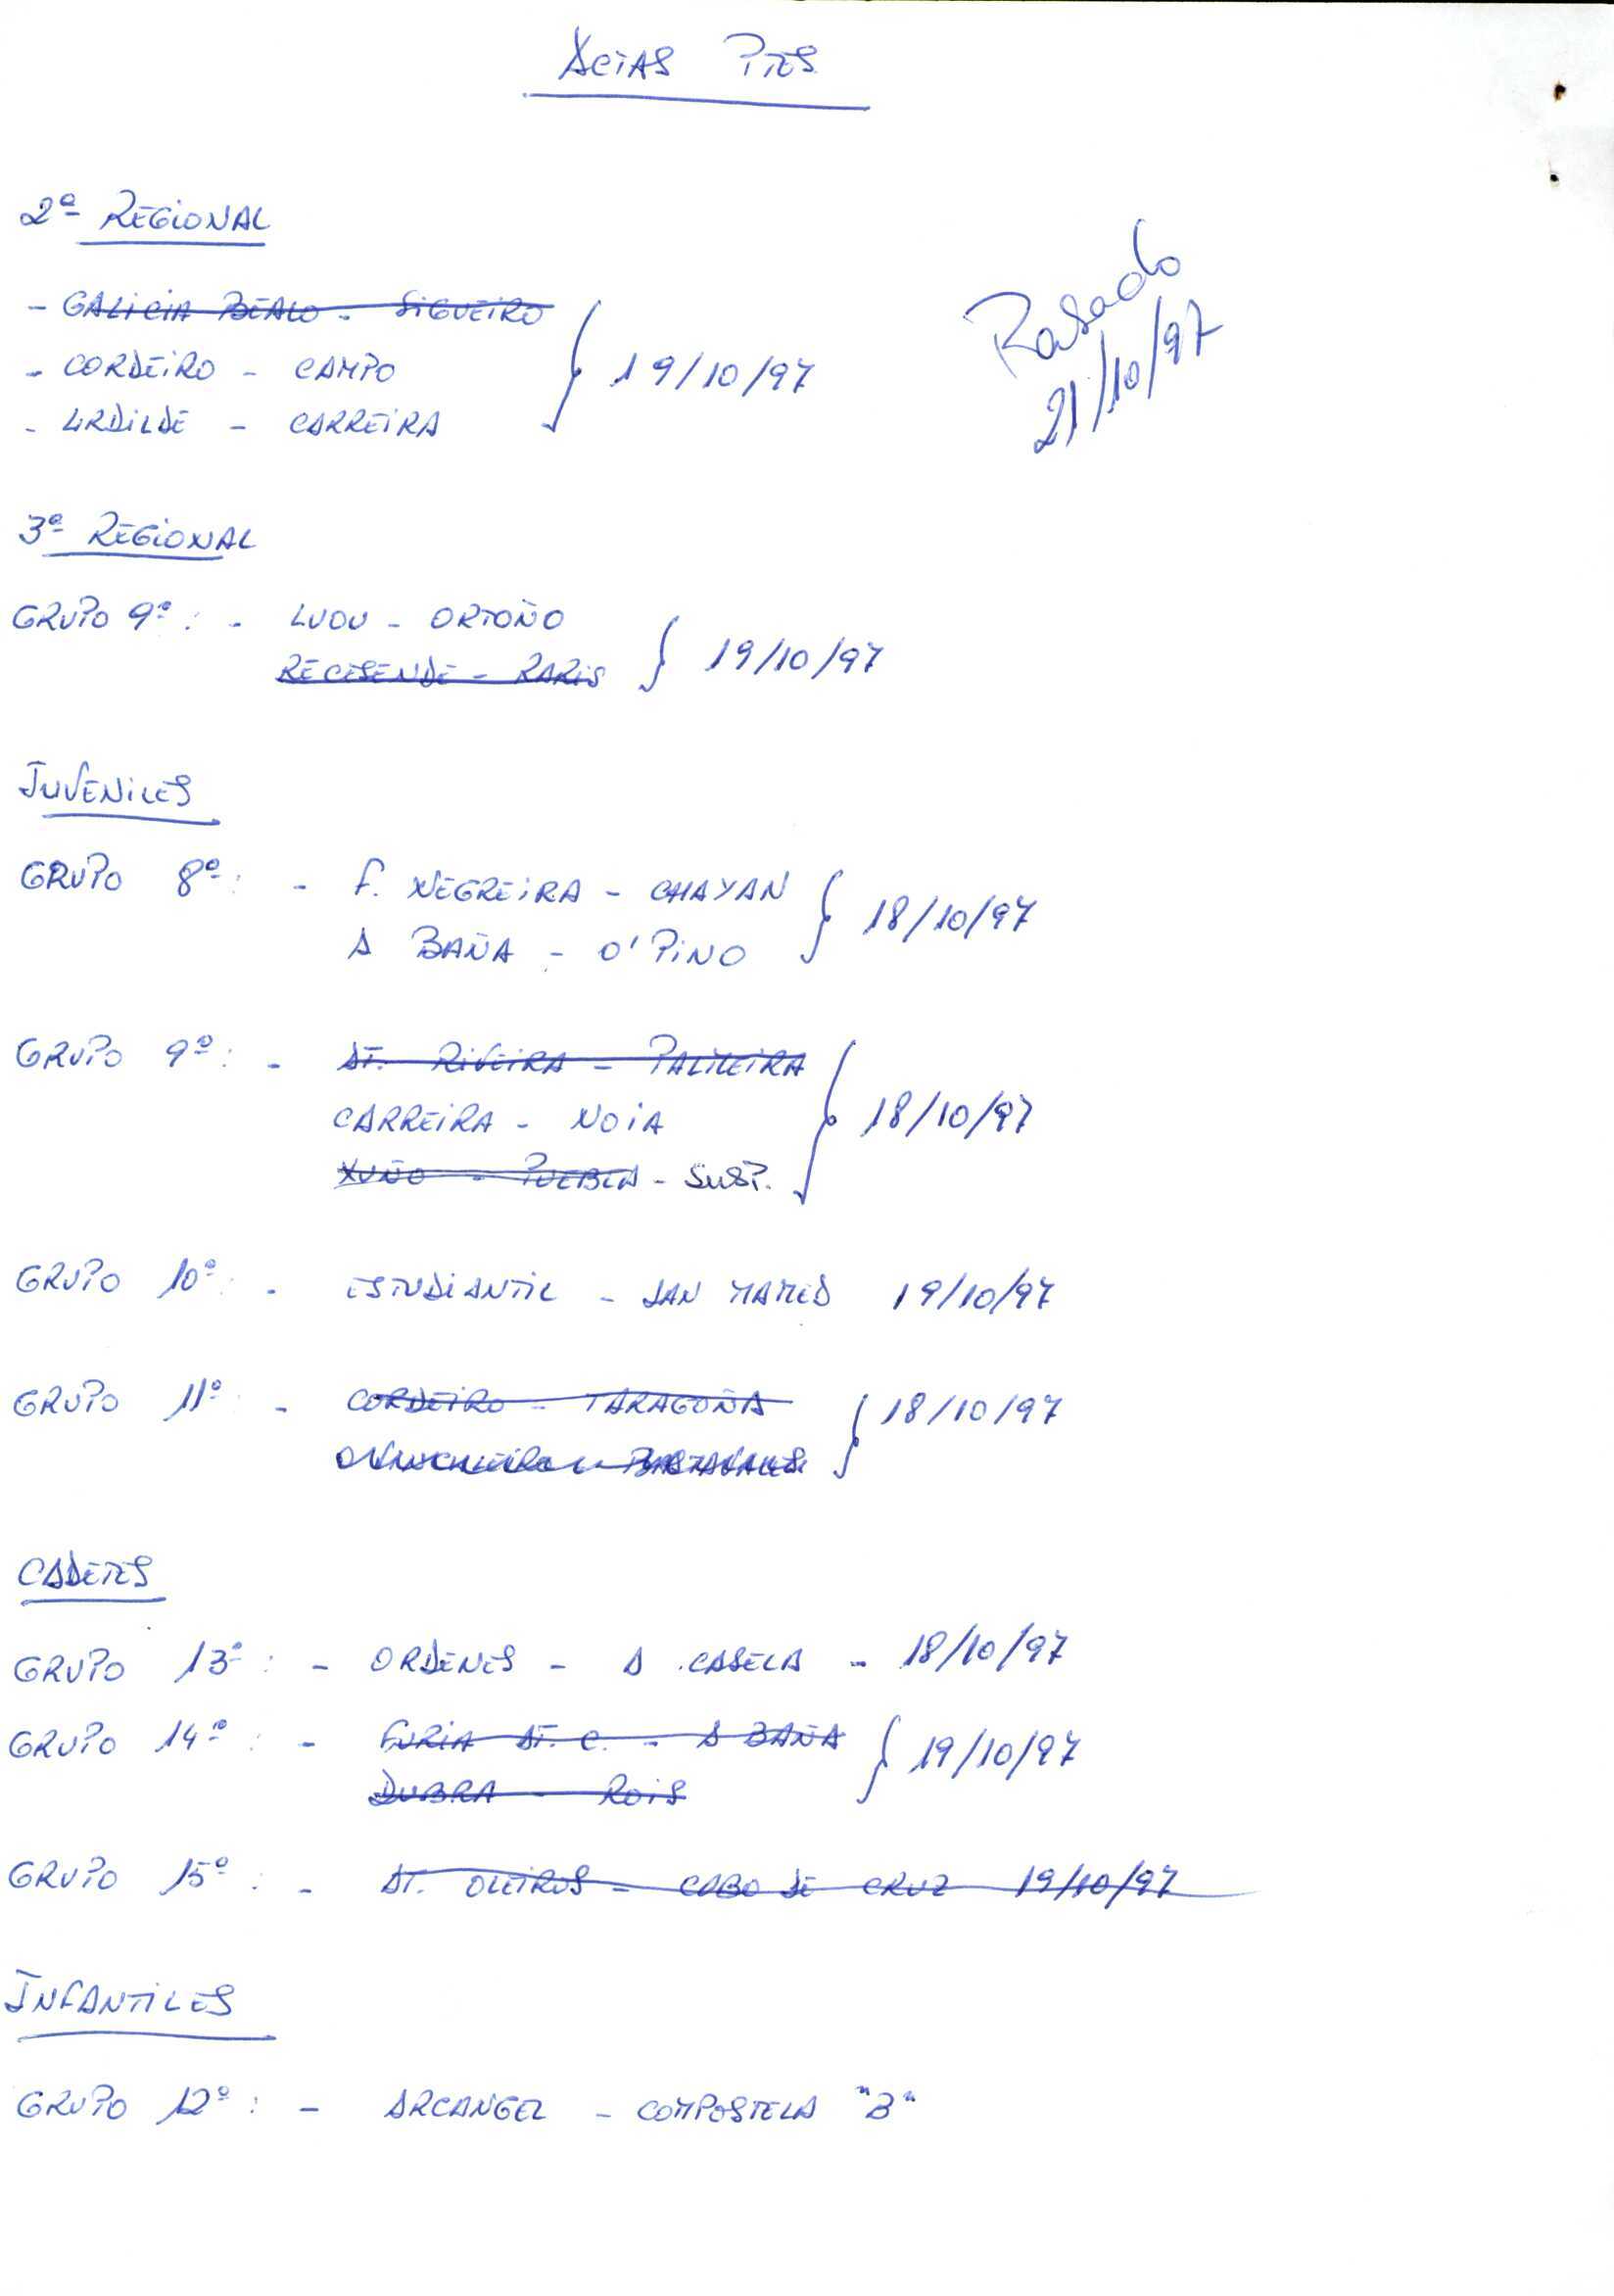 ACTAS PTES
2ª REGIONAL
- GALICIA BEALO - SIGUEIRO
- CORDEIRO - CAMPO } 19/10/97
- URDILDE - CARREIRA
Pasado
21/10/97
3ª REGIONAL
GRUPO 9º : - LUOU - ORTOÑO
RECESENDE - RARIS } 19/10/97
JUVENILES
GRUPO 8º : - F. NEGREIRA - CHAYAN
A BAÑA - O'PINO } 18/10/97
GRUPO 9º : - AT. RIVEIRA - PALMEIRA
CARREIRA - NOIA } 18/10/97
XUÑO - PUEBLA - SUSP.
GRUPO 10º : - ESTUDIANTIL - SAN MAMED 19/10/97
GRUPO 11º : - CORDEIRO - TARAGOÑA } 18/10/97
BASTAVALES
CADETES
GRUPO 13º : - ORDENES - A CASELA - 18/10/97
GRUPO 14º : - FURIA AT. C. - A BAÑA } 19/10/97
DUBRA - ROIS
GRUPO 15º : - AT. OLEIROS - CABO DE CRUZ 19/10/97
INFANTILES
GRUPO 12º : - ARCANGEL - COMPOSTELA "B"